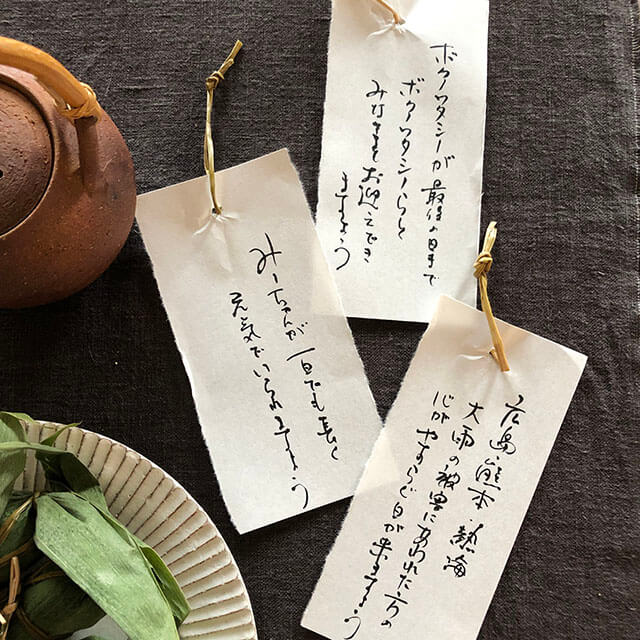 ボクハタシーが最後の日まで
ボクハタシーらと
みなさまをお迎えでき
ますよう
みーちゃんが一日でも長く
元気でいられますよう
広島・熊本・熱海
大雨の被害にあわれた方の
心がやすらぐ日が来ますよう